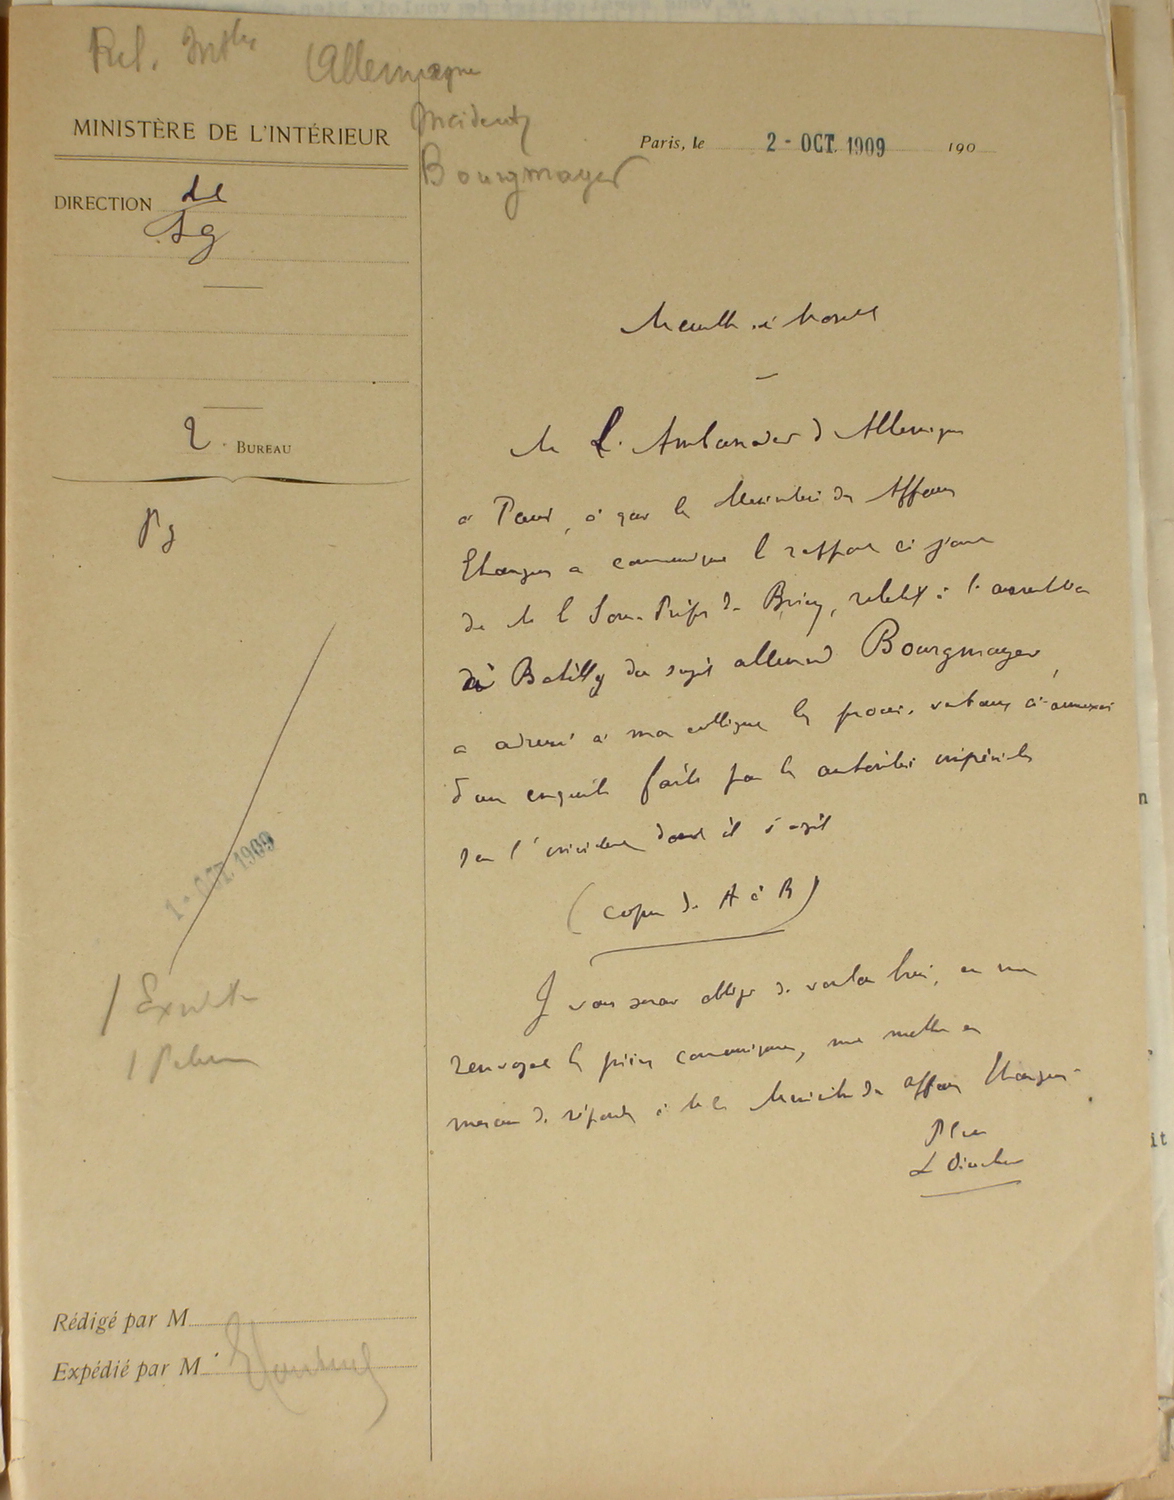 Rel. Intles Allemagne
Incidents
Bourgmayer
MINISTÈRE DE L'INTÉRIEUR
Paris, le 2 - OCT. 1909 190
DIRECTION de
Sg
Meurthe et Moselle
2. BUREAU
M. L. Ambassadeur d'Allemagne
à Paris, à qui le Ministre des Affaires
Etrangères a communiqué le rapport ci joint
de M. le Sous-Préfet de Briey, relatif à l'arrestation
à Batilly du sujet allemand Bourgmayer,
a adressé à mon collègue les procès-verbaux ci-annexés
d'une enquête faite par les autorités impériales
sur l'incident dont il s'agit
(copier de A à B)
1 - OCT. 1909
Je vous serai obligé de vouloir bien, en me
renvoyant les pièces communiquées, me mettre en
mesure de répondre à M. le Ministre des Affaires Etrangères.
Le Directeur
Rédigé par M
Expédié par M